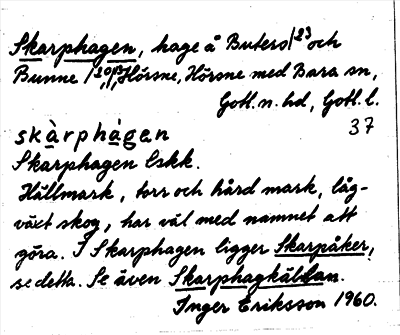 Skarphagen, hage å Buters 1/23 och
Bunne Hörsne, Hörsne med Bara sn,
Gotl. n. hd, Gotl. l.
37
skàrphágan
Skarphagen Eskk.
Hällmark, torr och hård mark, låg-
växt skog, har väl med namnet att
göra. I Skarphagen ligger Skarpåker,
se detta. Se även Skarphagkällan.
Inger Eriksson 1960.